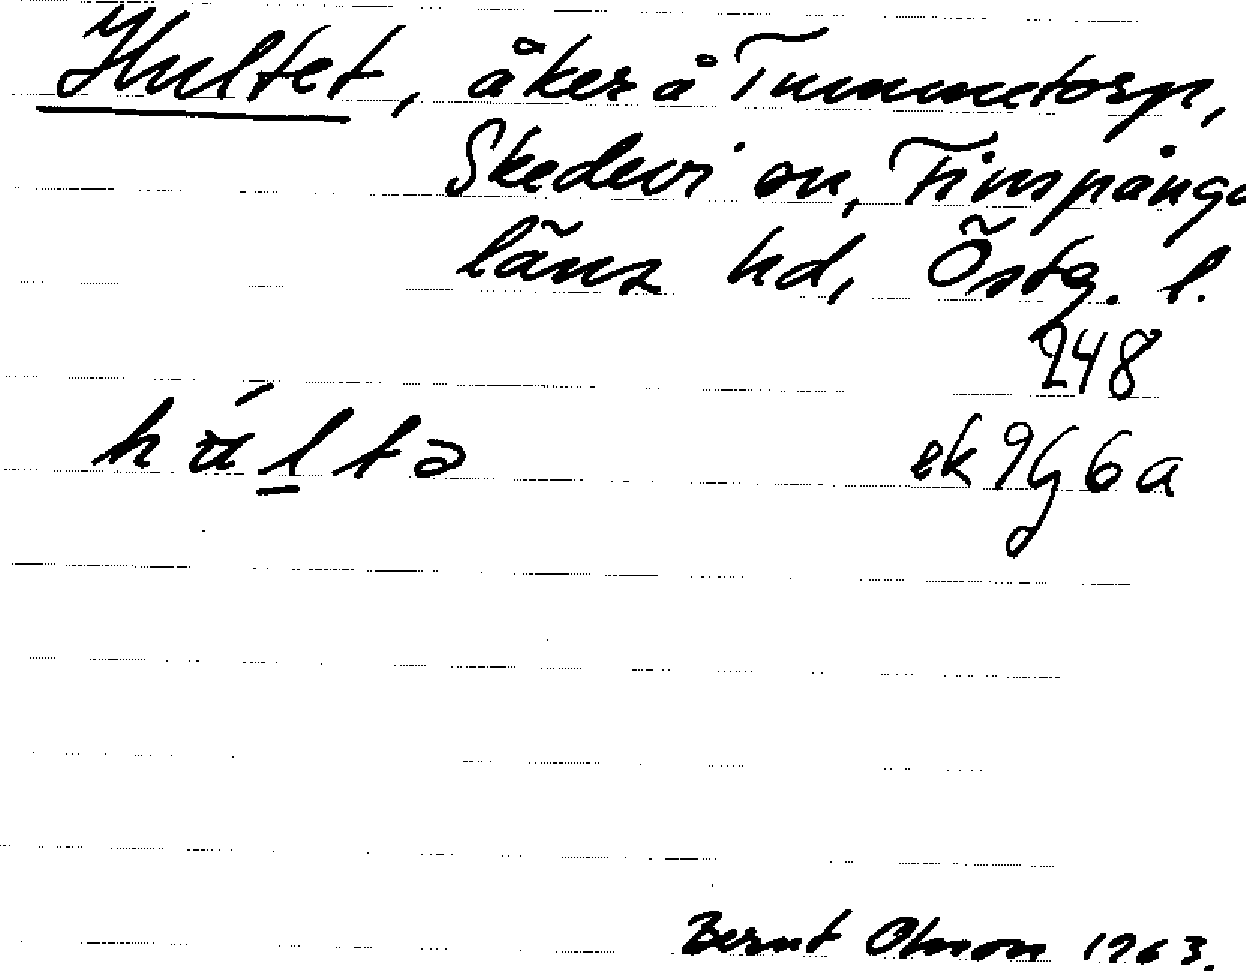 Hultet, åker å Tummetorp,
Skedevi sn, Finspånga
läns hd, Östg. l.
248
hu̇́l̲tə
ek 9G 6a
Bernt Olsson 1963.